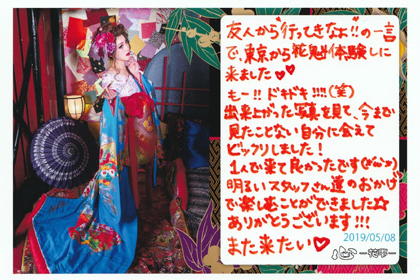 友人から"行ってきなよ!!"の一言
で、東京から花魁体験しに
来ました♥♥
もー!! ドキドキ!!!!(笑)
出来上がった写真を見て、今まで
見たことない自分に会えて
ビックリしました!
1人で来て良かったです
明るいスタッフさん達のおかげ
で楽しむことができました☆
ありがとうございます!!!
また来たい♡
2019/05/08
心